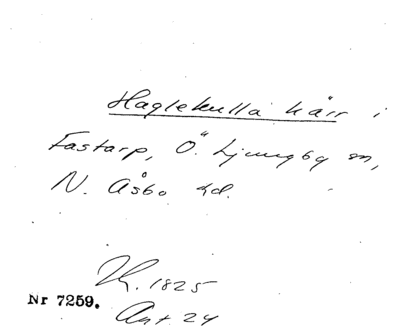 Haglekulla kärr i
Fastarp, Ö. Ljungby sn,
N. Åsbo hd.
1825
Nr 7259.
Ant. 24